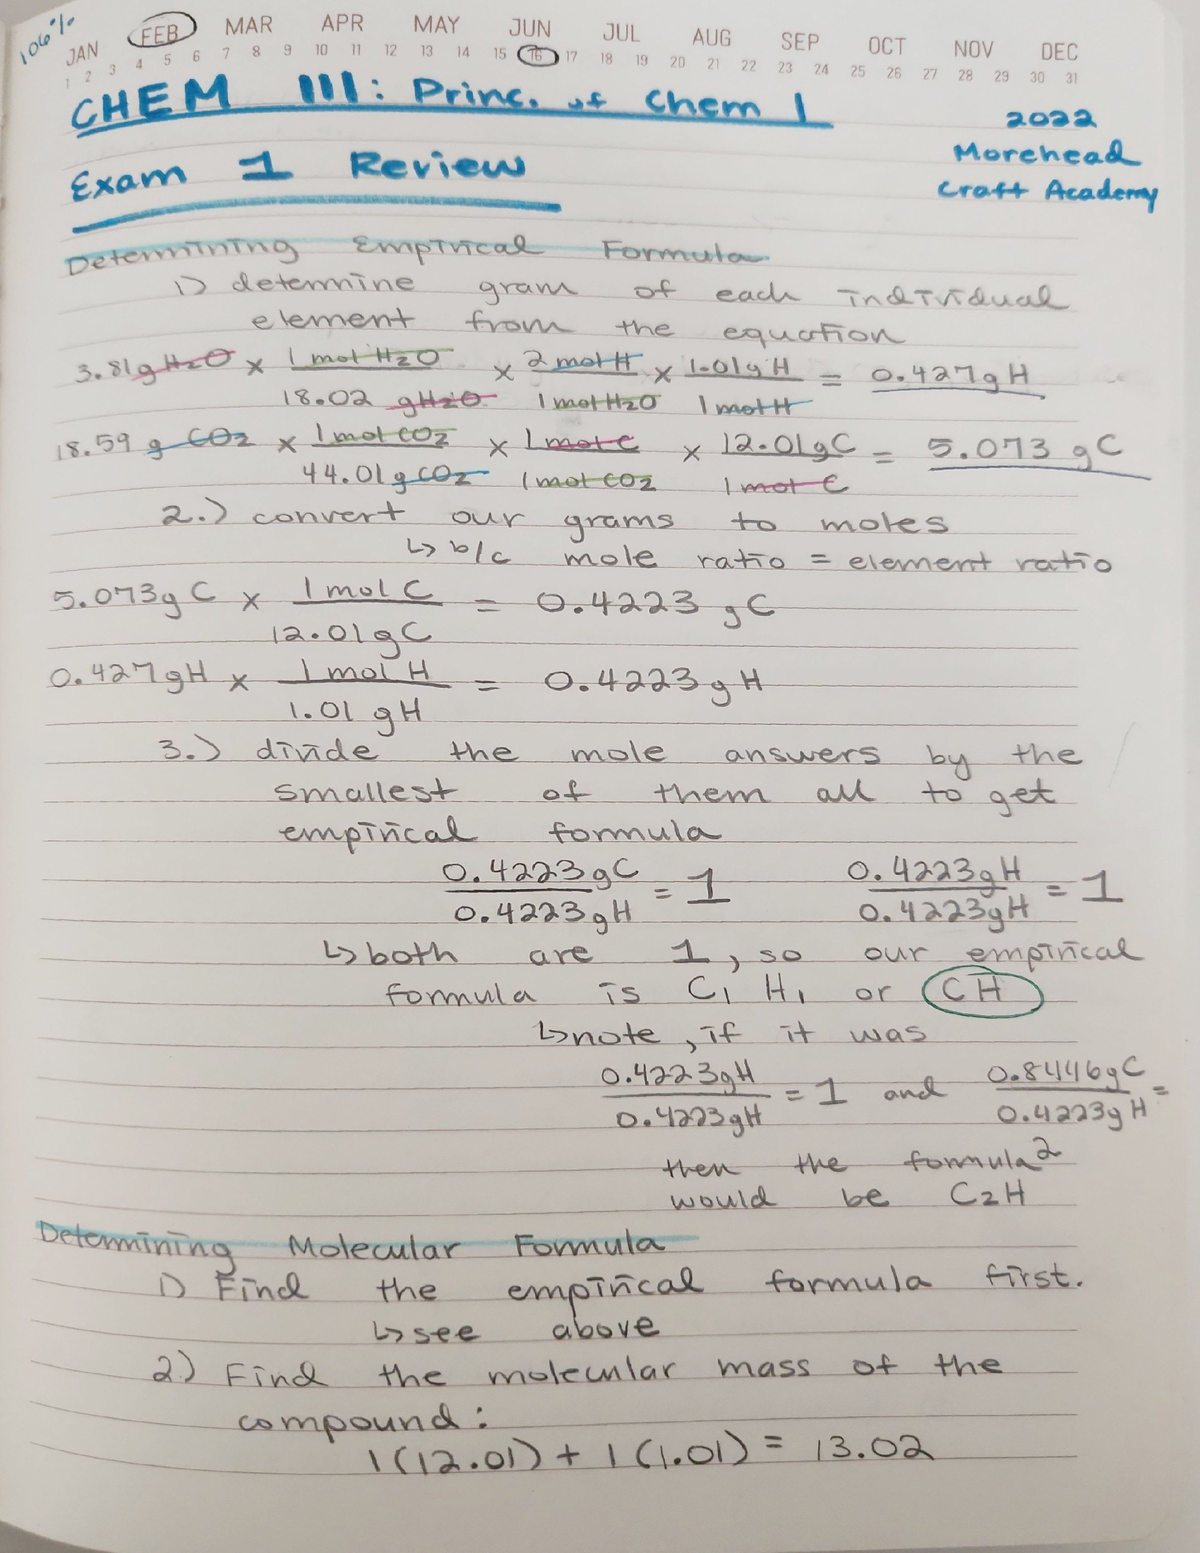 106%
JAN FEB MAR APR MAY JUN JUL AUG SEP OCT NOV DEC
1 2 3 4 5 6 7 8 9 10 11 12 13 14 15 16 17 18 19 20 21 22 23 24 25 26 27 28 29 30 31
CHEM 111: Princ. of Chem 1
2022
Morehead
Craft Academy
Exam 1 Review
Determining Empirical Formula
1) determine gram of each individual
element from the equation
3.81g H2O × 1 mol H2O × 2 mol H × 1.01g H = 0.427g H
18.02 g H2O 1 mol H2O 1 mol H
18.59 g CO2 × 1 mol CO2 × 1 mol C × 12.01g C = 5.073 g C
44.01g CO2 1 mol CO2 1 mol C
2.) convert our grams to moles
↳ b/c mole ratio = element ratio
5.073g C × 1 mol C = 0.4223 g C
12.01g C
0.427g H × 1 mol H = 0.4223 g H
1.01 g H
3.) divide the mole answers by the
smallest of them all to get
empirical formula
0.4223g C = 1 0.4223g H = 1
0.4223g H 0.4223g H
↳ both are 1, so our empirical
formula is C1 H1 or CH
↳ note, if it was
0.4223gH = 1 and 0.8446gC =
0.4223gH 0.4223g H
2
then the formula
would be C2H
Determining Molecular Formula
1) Find the empirical formula first.
↳ see above
2) Find the molecular mass of the
compound:
1(12.01) + 1(1.01) = 13.02